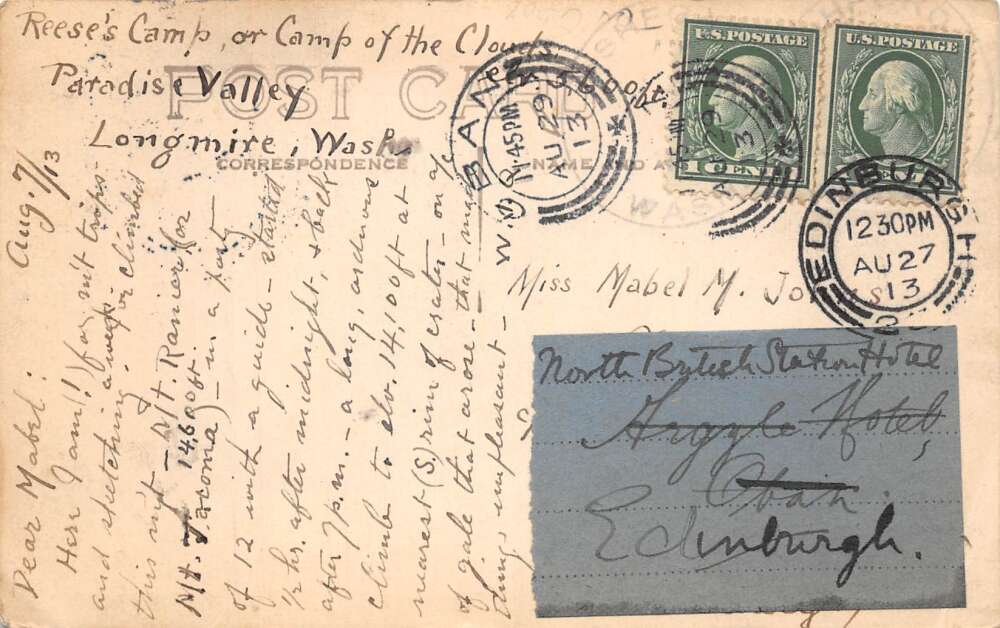 Reese's Camp, or Camp of the Clouds
Paradise Valley 5600 ft.
Longmire, Wash.
POST CARD
CORRESPONDENCE
NAME AND A
Aug. 7/13
Dear Mabel:
Here I am (!) for mt trips
and sketching a week or climbed
this mt — Mt. Ranier (or
Mt. Tacoma) 14,600 ft — in a party
of 12 with a guide — started
½ hr. after midnight, & back
after 7 p.m. — a long, arduous
climb to elv. 14,100 ft at
nearest (S) rim of crater on a/c
of gale that arose — that made
things unpleasant —
U.S. POSTAGE
U.S. POSTAGE
1 CENT
WASH
OBAN
11.45PM
AU 29
13
N.B.
45PM
AU 29
13
EDINBURGH
12 30PM
AU 27
13
Miss Mabel M. Jones
North British Station Hotel
Argyle Hotel,
Oban.
Edinburgh.